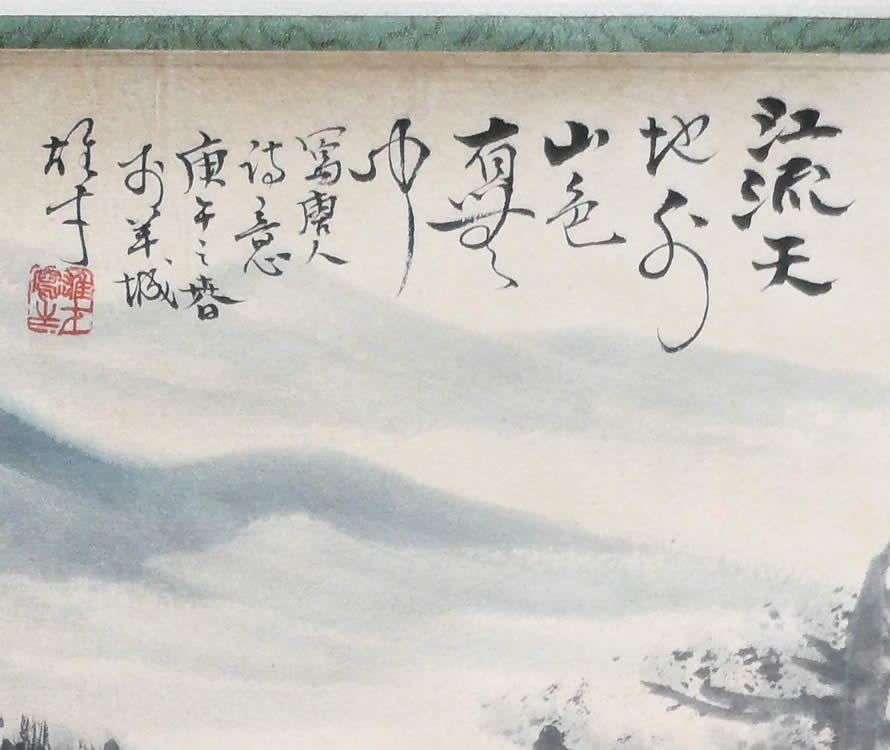 江流天
地外
山色
有無
中
寫唐人
詩意
庚午之春
於羊城
雄才